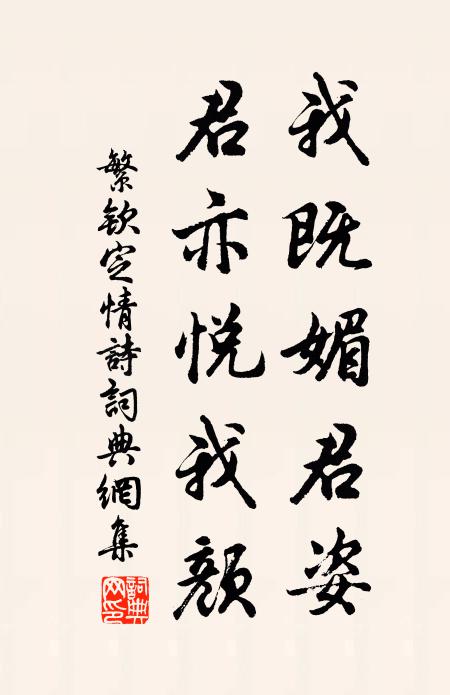 我既媚君姿
君亦悦我顏
繁欽定情詩詞典網集
詞典网印